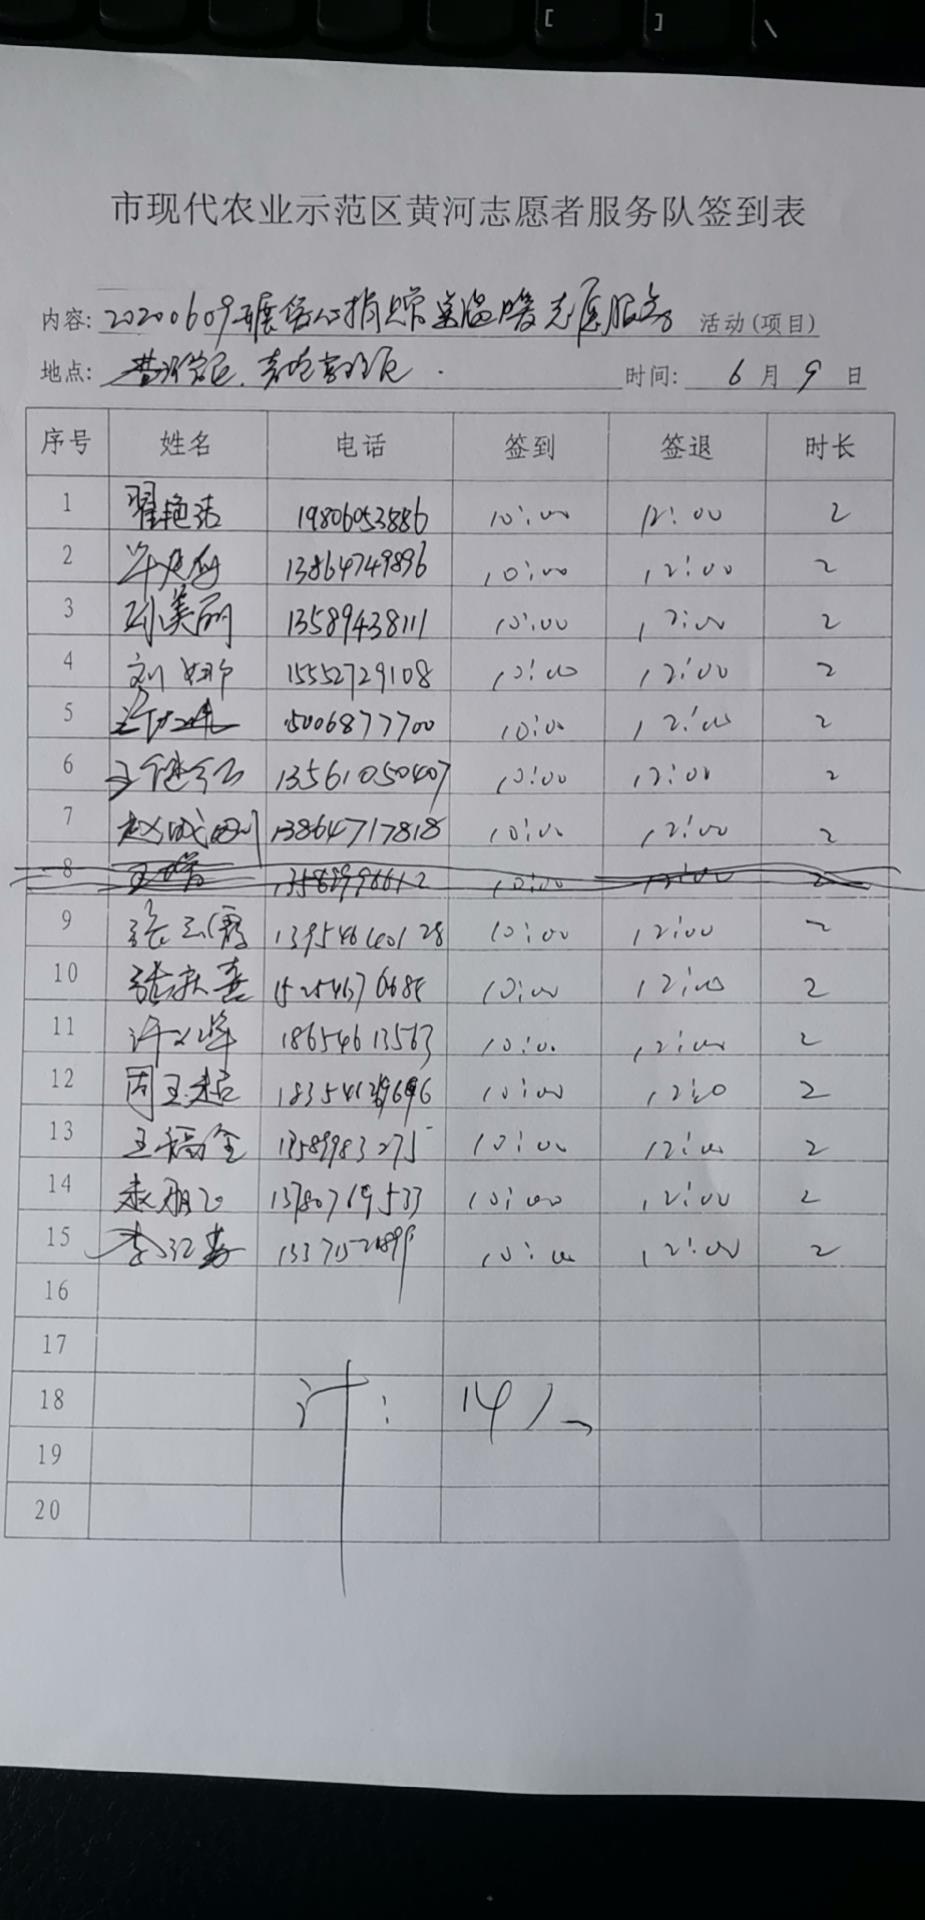 [
]
\
市现代农业示范区黄河志愿者服务队签到表
内容: 20200609开展爱心捐赠送温暖志愿服务 活动(项目)
地点: 时间: 6 月 9 日
序号 姓名 电话 签到 签退 时长
1 翟艳洁 19806053886 10:00 12:00 2
2 13864749896 10:00 12:00 2
3 孙美丽 13589438111 10:00 12:00 2
4 刘娜 15552729108 10:00 12:00 2
5 5006877700 10:00 12:00 2
6 王继红 13561050407 10:00 12:00 2
7 赵成刚 13864717818 10:00 12:00 2
8 10:00 12:00 2
9 张玉霞 10:00 12:00 2
10 张秋喜 10:00 12:00 2
11 许义峰 18654613563 10:00 12:00 2
12 周玉超 10:00 12:0 2
13 王福全 13589983275 10:00 12:00 2
14 13780769533 10:00 12:00 2
15 10:00 12:00 2
16
17
18 计: 14人
19
20